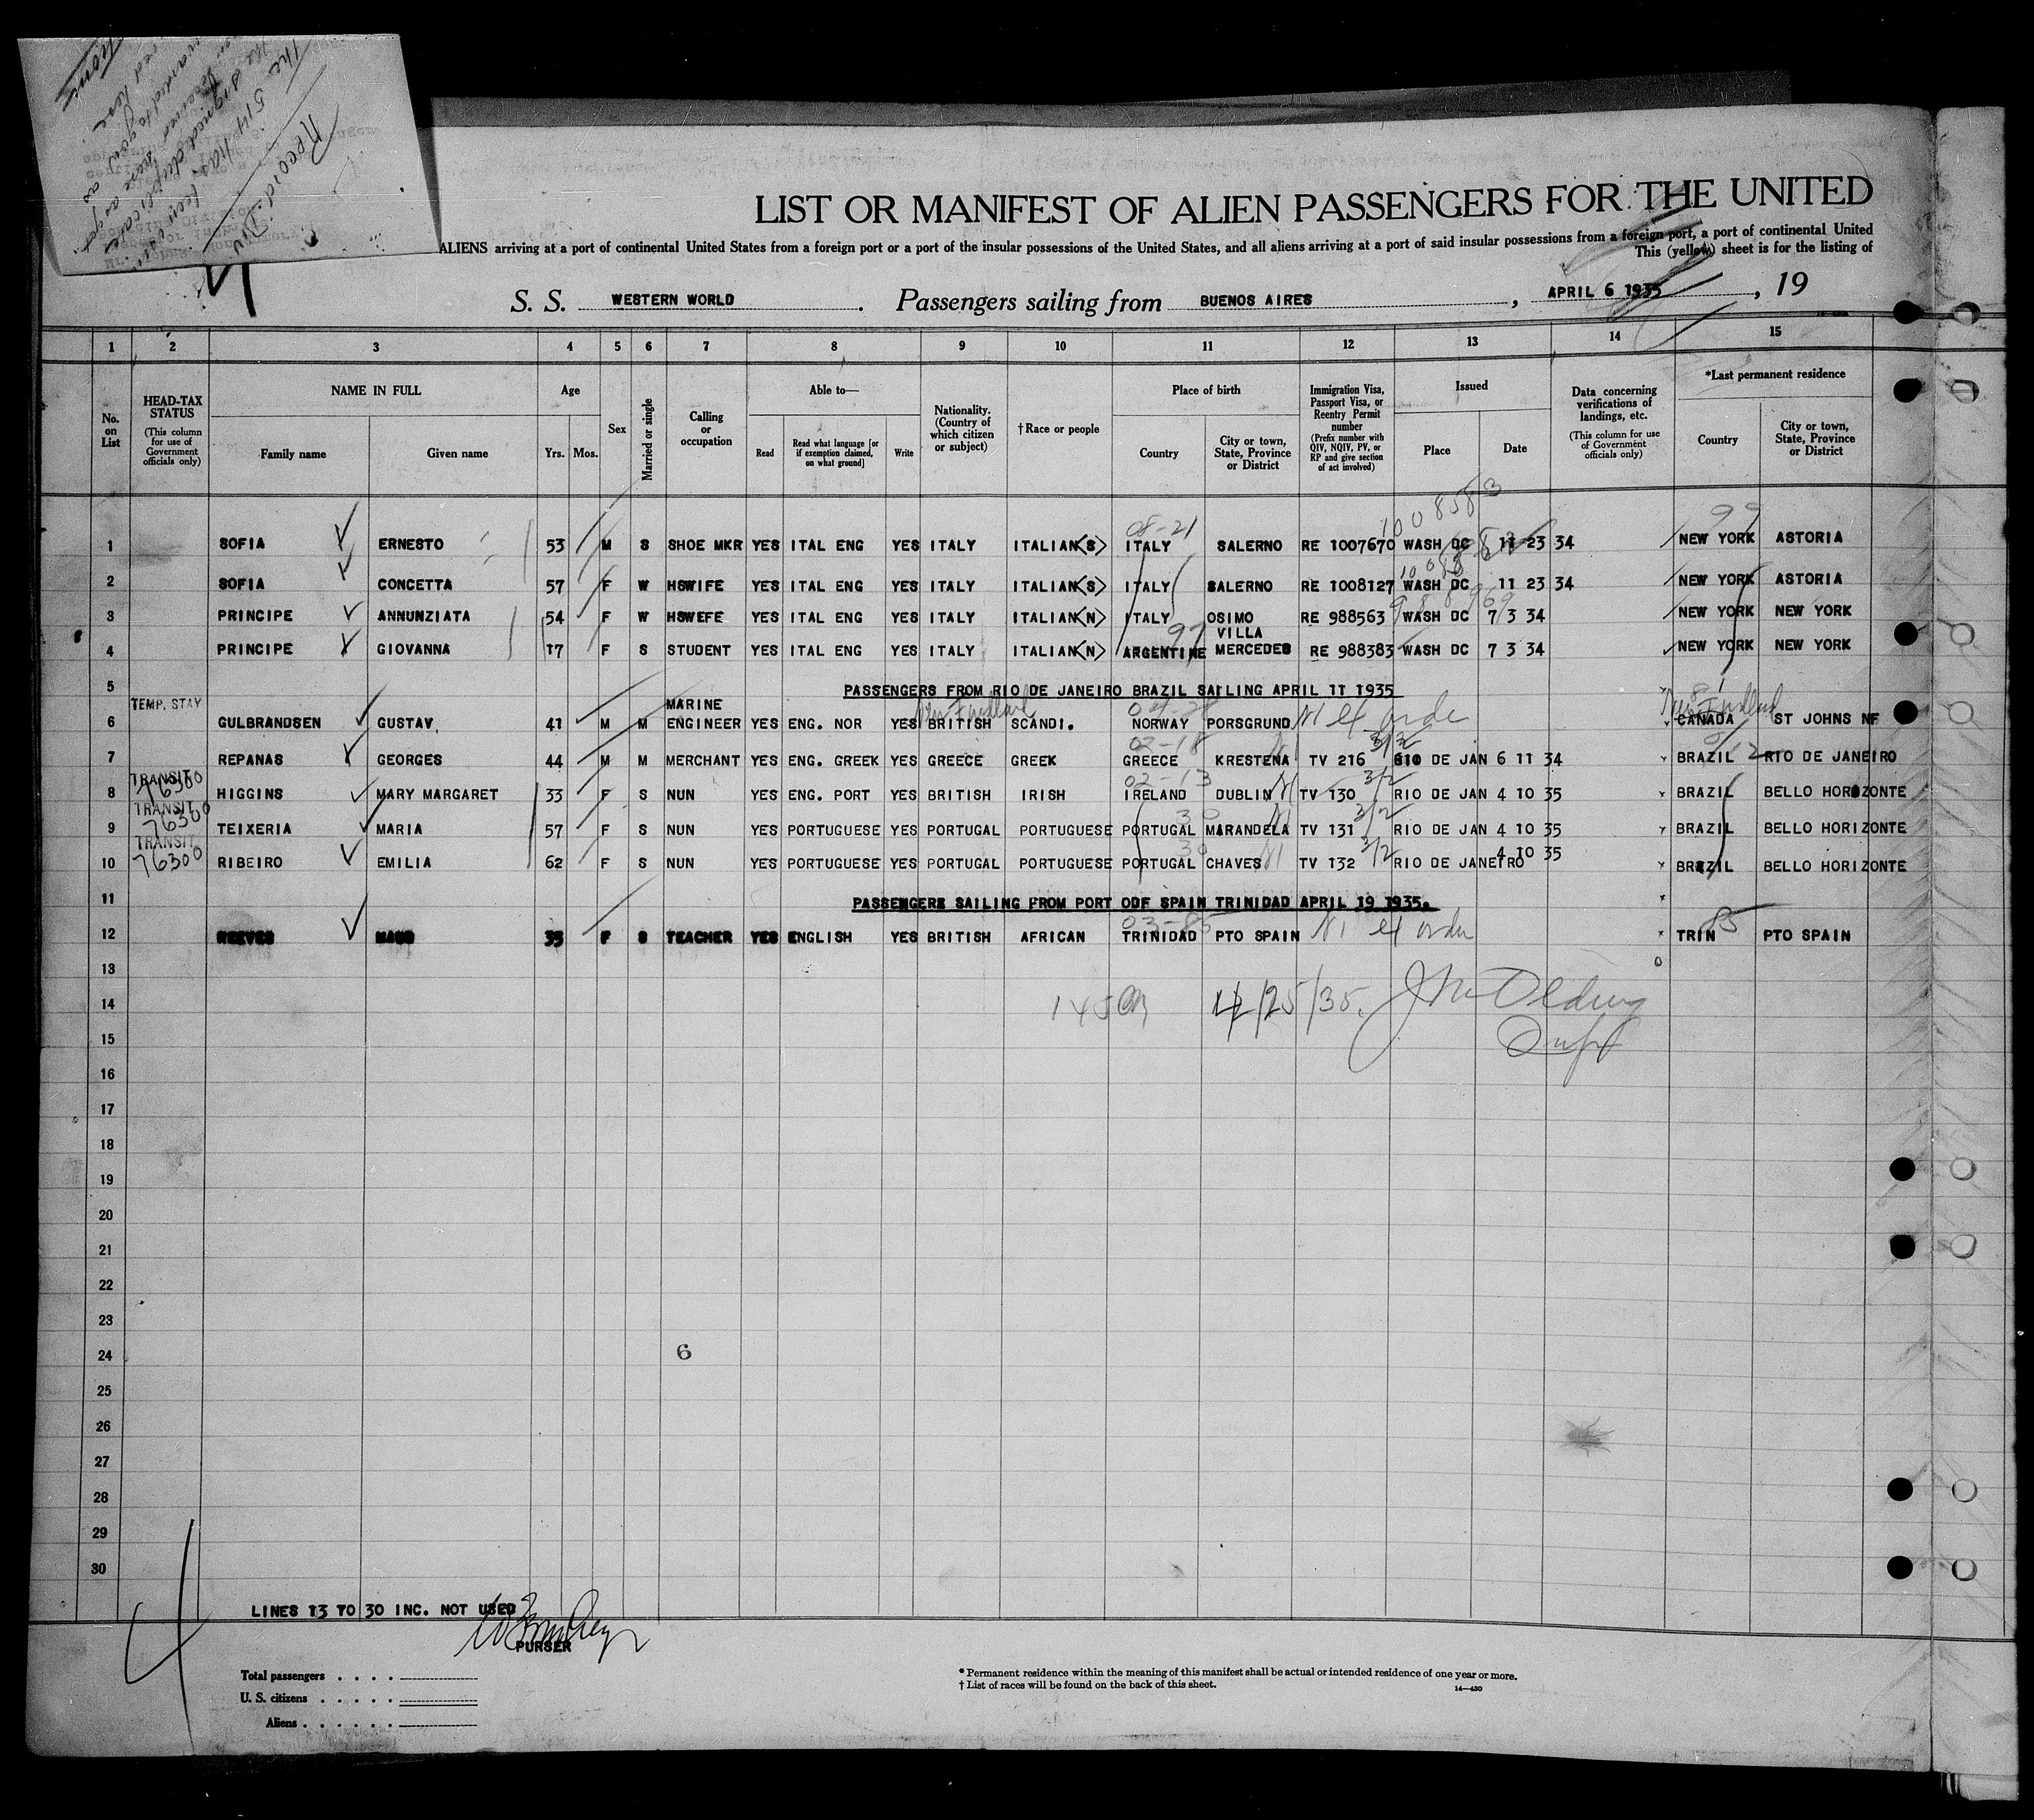 Record Div
The 514 has been
LIST OR MANIFEST OF ALIEN PASSENGERS FOR THE UNITED
ALIENS arriving at a port of continental United States from a foreign port or a port of the insular possessions of the United States, and all aliens arriving at a port of said insular possessions from a foreign port, a port of continental United
This (yellow) sheet is for the listing of
S. S. WESTERN WORLD . Passengers sailing from BUENOS AIRES , APRIL 6 1935 , 19
1 2 3 4 5 6 7 8 9 10 11 12 13 14 15
No. on List
HEAD-TAX STATUS (This column for use of Government officials only)
NAME IN FULL Family name Given name
Age Yrs. Mos.
Sex
Married or single
Calling or occupation
Able to— Read Read what language [or if exemption claimed, on what ground] Write
Nationality. (Country of which citizen or subject)
†Race or people
Place of birth Country City or town, State, Province or District
Immigration Visa, Passport Visa, or Reentry Permit number (Prefix number with QIV, NQIV, PV, or RP and give section of act involved)
Issued Place Date
Data concerning verifications of landings, etc. (This column for use of Government officials only)
*Last permanent residence Country City or town, State, Province or District
100 8583
08-21 99
1 SOFIA ERNESTO 53 M S SHOE MKR YES ITAL ENG YES ITALY ITALIAN(S) ITALY SALERNO RE 1007670 WASH DC 11 23 34 NEW YORK ASTORIA
2 SOFIA CONCETTA 57 F W HSWIFE YES ITAL ENG YES ITALY ITALIAN(S) ITALY SALERNO RE 1008127 WASH DC 11 23 34 NEW YORK ASTORIA
3 PRINCIPE ANNUNZIATA 54 F W HSWEFE YES ITAL ENG YES ITALY ITALIAN(N) ITALY OSIMO RE 988563 WASH DC 7 3 34 NEW YORK NEW YORK
97 VILLA
4 PRINCIPE GIOVANNA 17 F S STUDENT YES ITAL ENG YES ITALY ITALIAN(N) ARGENTINE MERCEDES RE 988383 WASH DC 7 3 34 NEW YORK NEW YORK
5 PASSENGERS FROM RIO DE JANEIRO BRAZIL SAILING APRIL 11 1935
TEMP. STAY MARINE
6 GULBRANDSEN GUSTAV. 41 M M ENGINEER YES ENG. NOR YES BRITISH SCANDI. NORWAY PORSGRUND CANADA ST JOHNS NF
02-18 3/2
7 REPANAS GEORGES 44 M M MERCHANT YES ENG. GREEK YES GREECE GREEK GREECE KRESTENA TV 216 RIO DE JAN 6 11 34 BRAZIL RIO DE JANEIRO
TRANSIT 76300 02-13 3/2
8 HIGGINS MARY MARGARET 33 F S NUN YES ENG. PORT YES BRITISH IRISH IRELAND DUBLIN TV 130 RIO DE JAN 4 10 35 BRAZIL BELLO HORIZONTE
TRANSIT 76300 30 3/2
9 TEIXERIA MARIA 57 F S NUN YES PORTUGUESE YES PORTUGAL PORTUGUESE PORTUGAL MARANDELA TV 131 RIO DE JAN 4 10 35 BRAZIL BELLO HORIZONTE
TRANSIT 76300 30 3/2
10 RIBEIRO EMILIA 62 F S NUN YES PORTUGUESE YES PORTUGAL PORTUGUESE PORTUGAL CHAVES TV 132 RIO DE JANEIRO 4 10 35 BRAZIL BELLO HORIZONTE
11 PASSENGERS SAILING FROM PORT ODF SPAIN TRINIDAD APRIL 19 1935.
03-85 85
12 REEVES MAUD 35 F S TEACHER YES ENGLISH YES BRITISH AFRICAN TRINIDAD PTO SPAIN TRIN PTO SPAIN
13
14 4/25/35.
15
16
17
18
19
20
21
22
23
24 6
25
26
27
28
29
30
LINES 13 TO 30 INC. NOT USED
PURSER
Total passengers
U. S. citizens
Aliens
* Permanent residence within the meaning of this manifest shall be actual or intended residence of one year or more.
† List of races will be found on the back of this sheet.
14—430